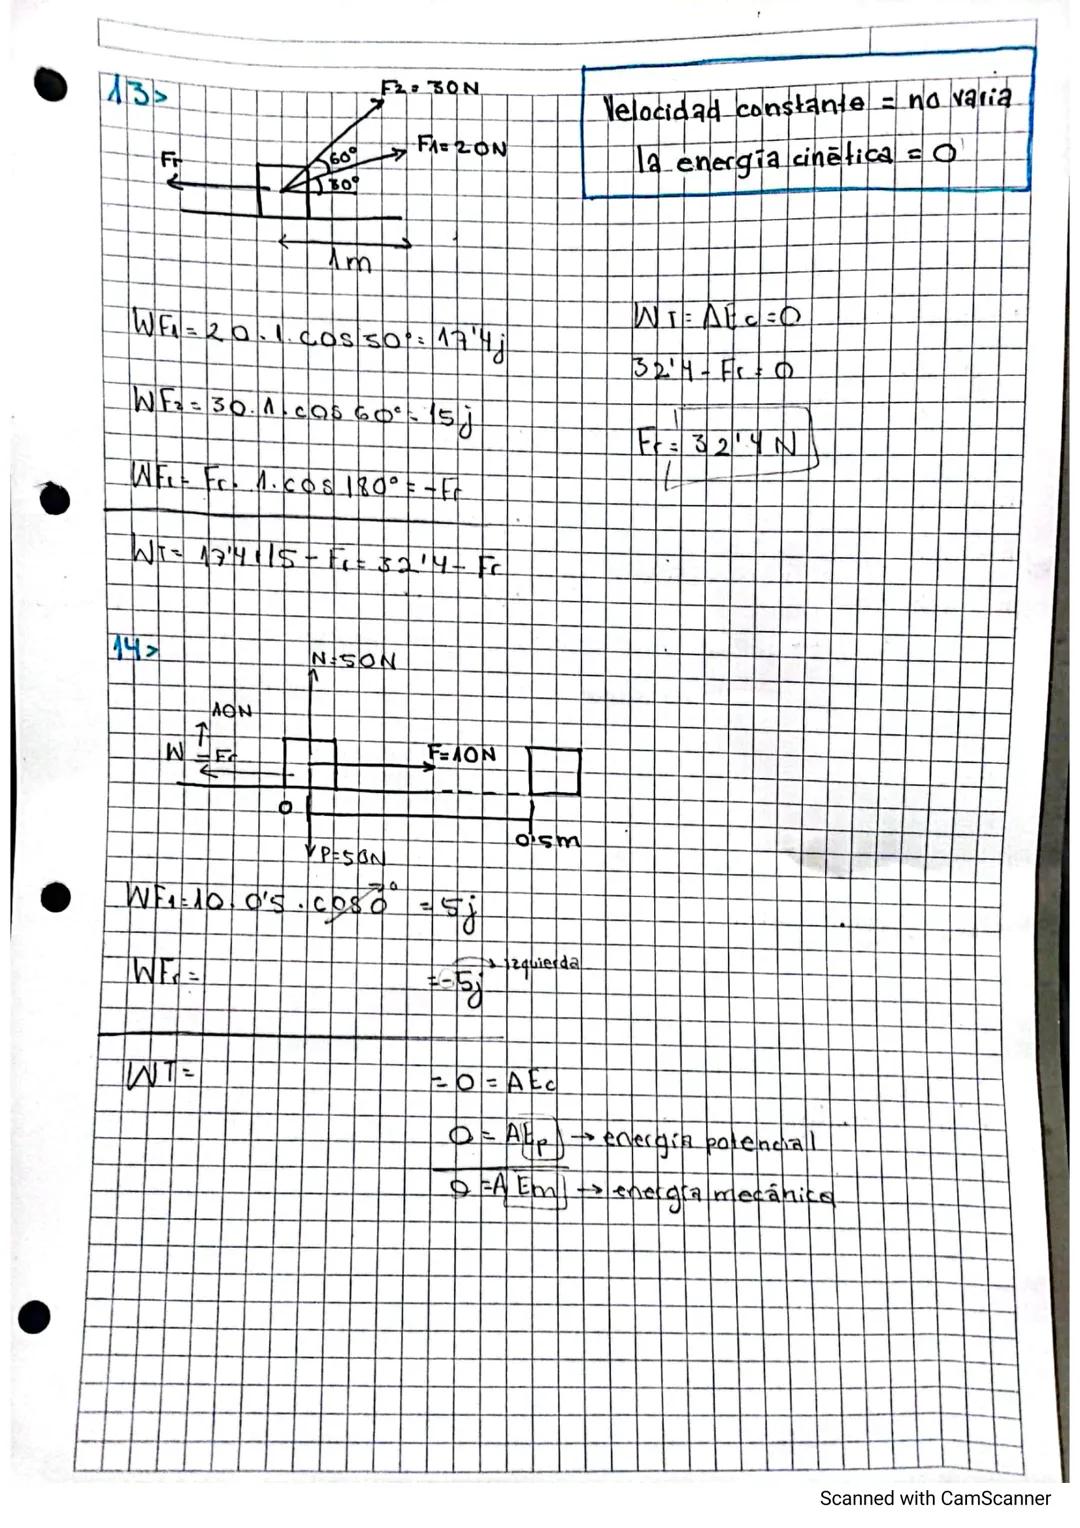 13>
F2 = 30N
F1=20N
Fr
60°
30°
1m
Velocidad constante = no varia
la energía cinética = 0
WF1 = 20 . 1 . cos 30° = 17'4j
WF2 = 30 . 1 . cos 60° = 15j
WFr = Fr . 1 . cos 180° = -Fr
WT = 17'4+15 - Fr = 32'4 - Fr
WT = ΔEc = 0
32'4 - Fr = 0
Fr = 32'4 N
14>
N=50N
10N
Fr
F=10N
0
0'5m
P=50N
WF1=10 . 0'5 . cos 0° = 5j
WFr = = -5j → izquierda
WT = = 0 = ΔEc
0 = ΔEp → energía potencial
0 = ΔEm → energía mecánica
Scanned with CamScanner